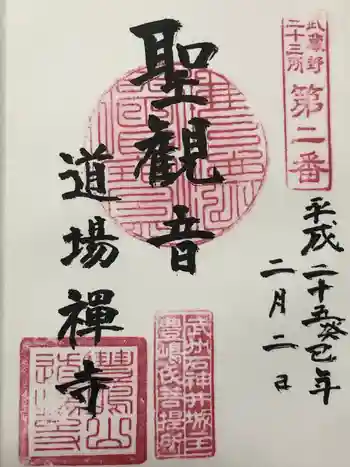 武蔵野
三十三所
第二番
平成二十五癸巳年
二月二日
聖観音
道場禅寺
武州石神井城主
豊嶋氏菩提所